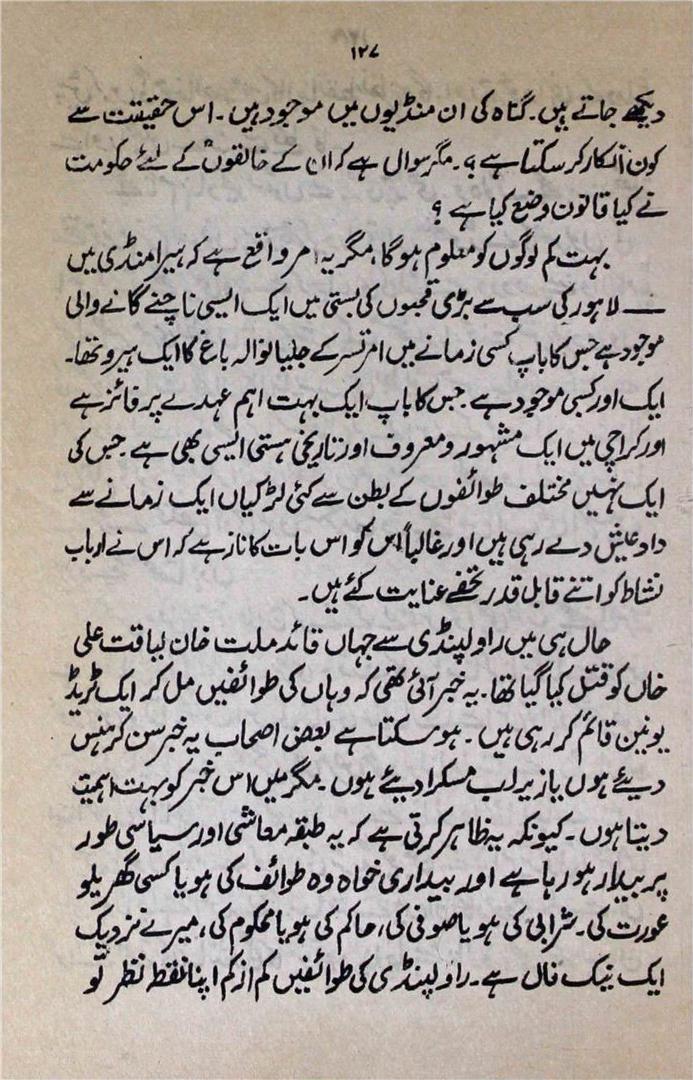 ۱۲۷
دیکھے جاتے ہیں۔ گناہ کی ان منڈیوں میں موجود ہیں۔ اس حقیقت سے
کون انکار کر سکتا ہے؟۔ مگر سوال ہے کہ ان کے خالقوں کے لئے حکومت
نے کیا قانون وضع کیا ہے؟
بہت کم لوگوں کو معلوم ہوگا، مگر یہ امر واقع ہے کہ ہیرا منڈی میں
— لاہور کی سب سے بڑی قحبوں کی بستی میں ایک ایسی ناچنے گانے والی
موجود ہے جس کا باپ کسی زمانے میں امرتسر کے جلیانوالہ باغ کا ایک ہیرو تھا۔
ایک اور کسبی موجود ہے۔ جس کا باپ ایک بہت اہم عہدے پر فائز ہے
اور کراچی میں ایک مشہور و معروف اور تاریخی ہستی ایسی بھی ہے۔ جس کی
ایک نہیں مختلف طوائفوں کے بطن سے کئی لڑکیاں ایک زمانے سے
داد عیش دے رہی ہیں اور غالباً اس کو اس بات کا ناز ہے کہ اس نے ارباب
نشاط کو اتنے قابل قدر تحفے عنایت کئے ہیں۔
حال ہی میں راولپنڈی سے جہاں قائد ملت خان لیاقت علی
خاں کو قتل کیا گیا تھا۔ یہ خبر آئی تھی کہ وہاں کی طوائفیں مل کر ایک ٹریڈ
یونین قائم کر رہی ہیں۔ ہو سکتا ہے بعض اصحاب یہ خبر سن کر ہنس
دیئے ہوں یا زیر لب مسکرا دیئے ہوں۔ مگر میں اس خبر کو بہت اہمیت
دیتا ہوں۔ کیونکہ یہ ظاہر کرتی ہے کہ یہ طبقہ معاشی اور سیاسی طور
پر بیدار ہو رہا ہے اور بیداری خواہ وہ طوائف کی ہو یا کسی گھریلو
عورت کی۔ شرابی کی ہو یا صوفی کی، حاکم کی ہو یا محکوم کی، میرے نزدیک
ایک نیک فال ہے۔ راولپنڈی کی طوائفیں کم از کم اپنا نقطہ نظر تو